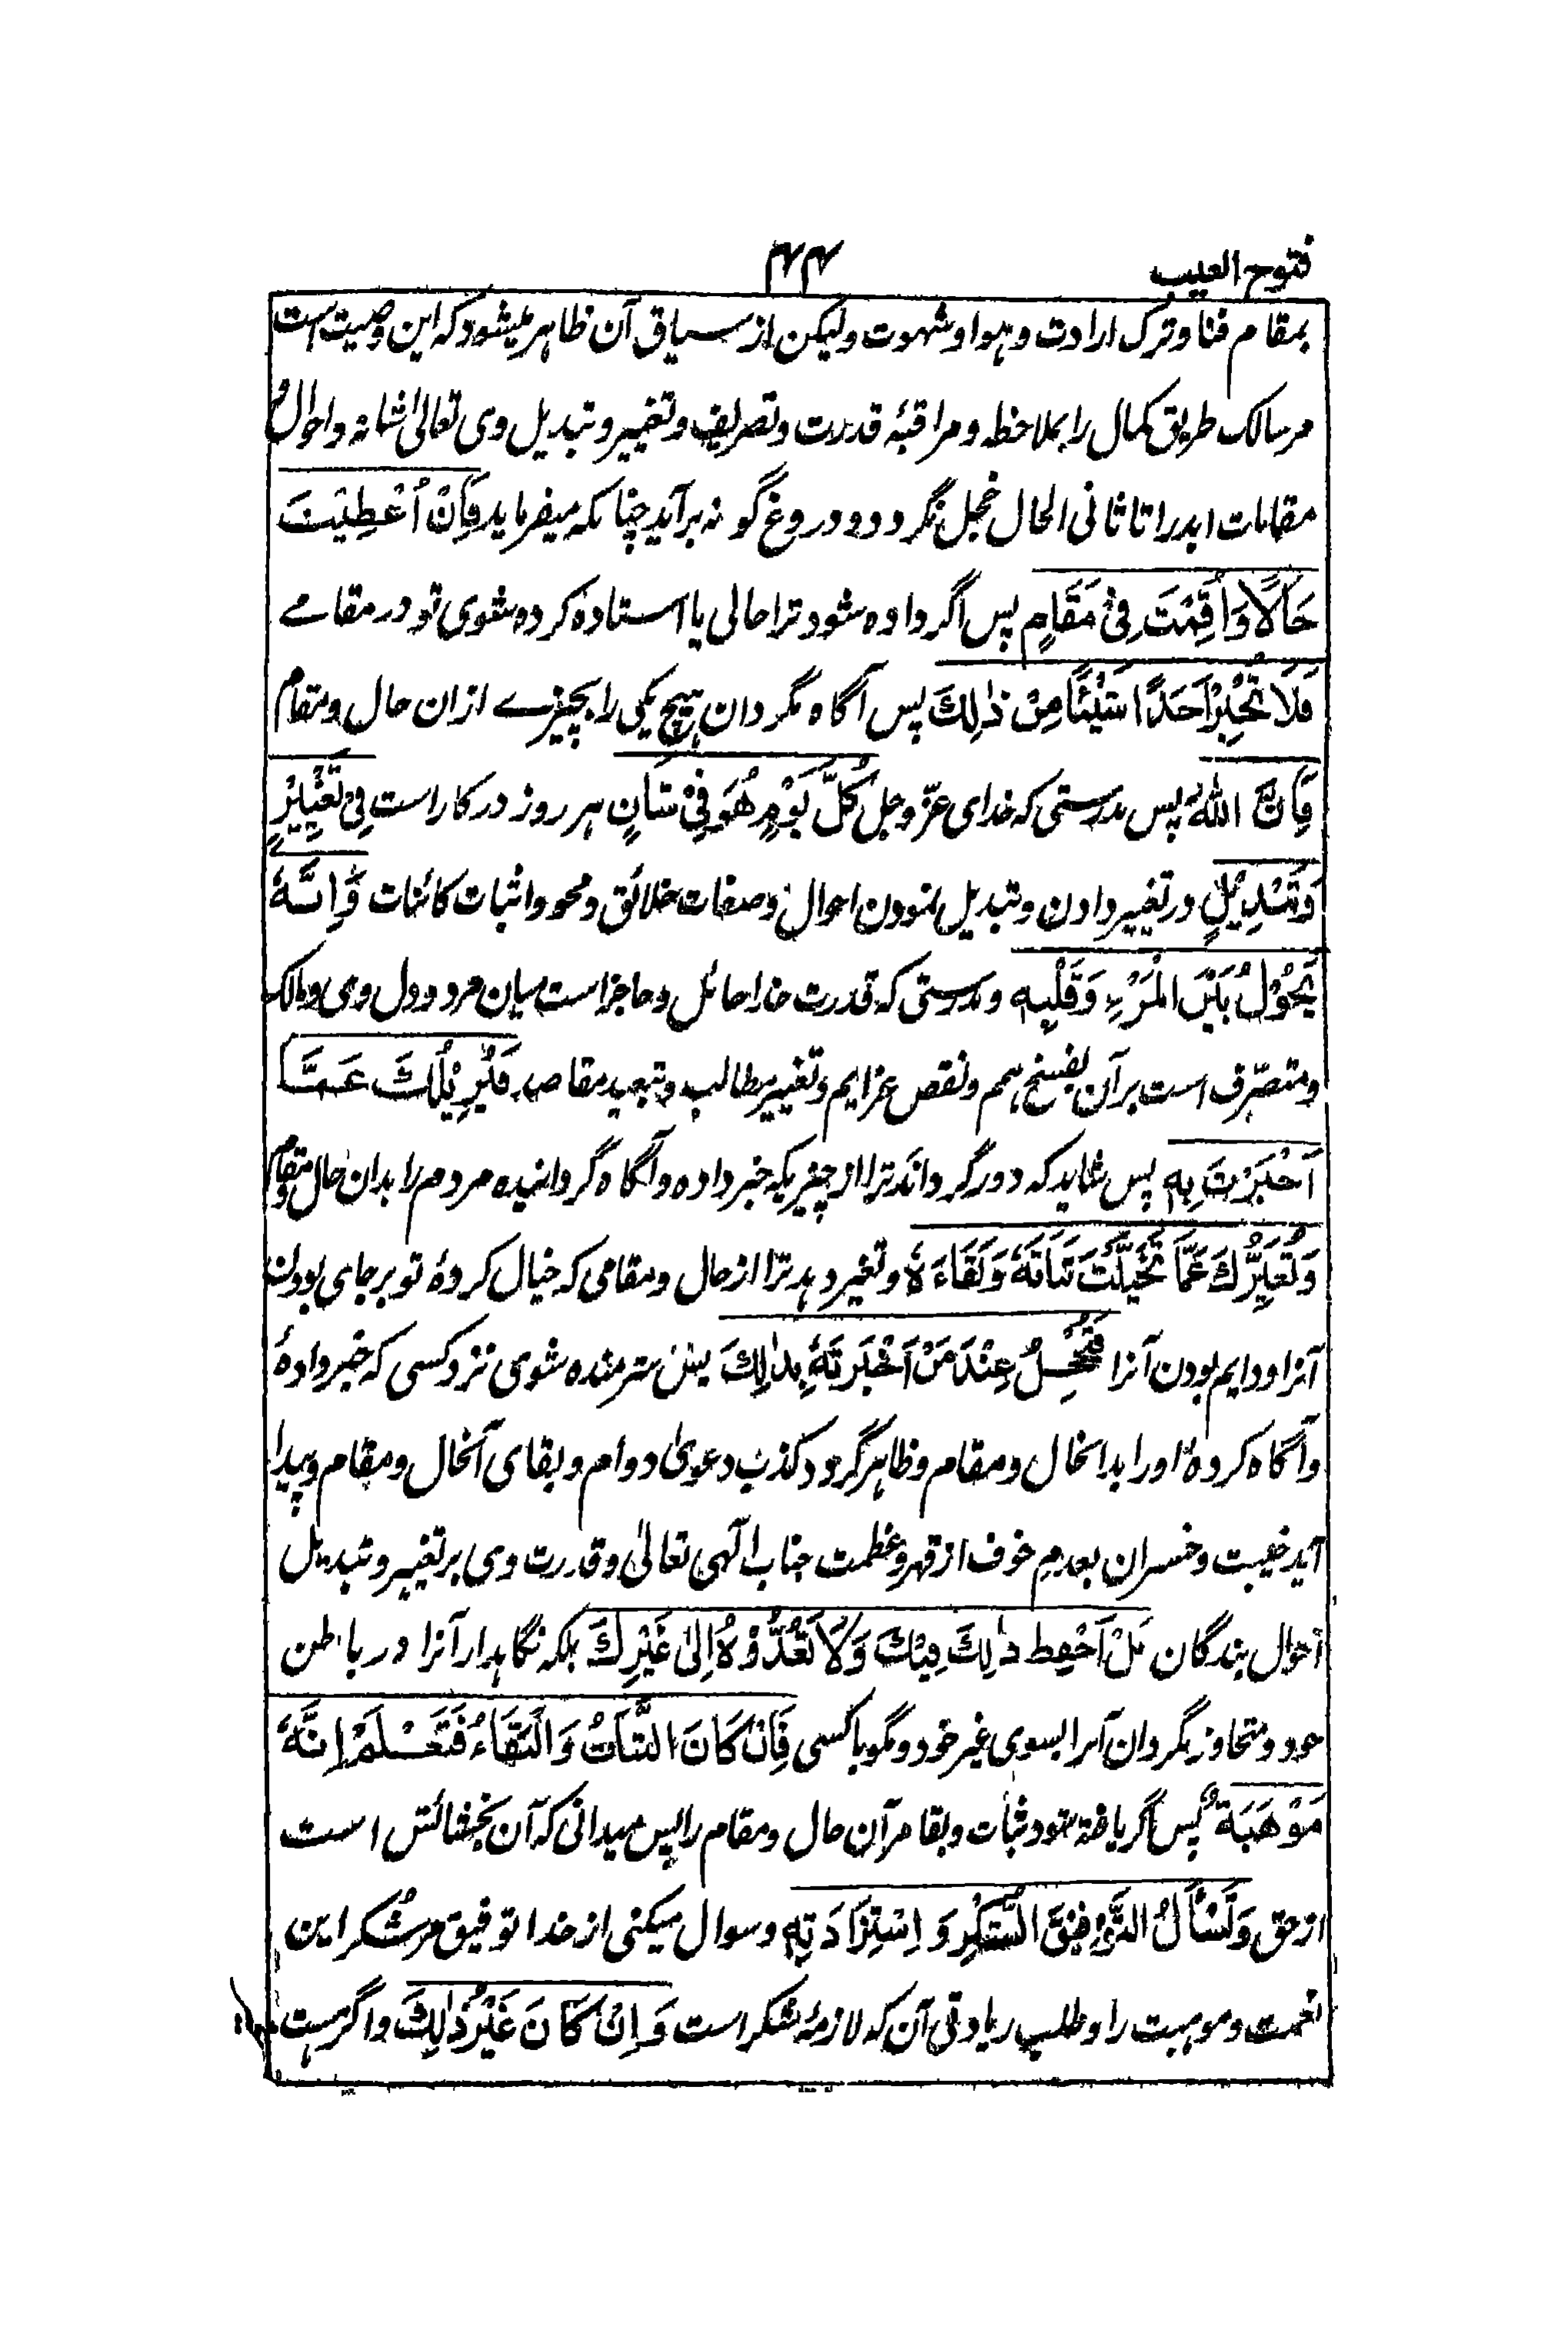 فتوح الغیب
۴۴
بمقام فنا و ترک ارادت و ہوا و شہوت ولیکن از سیاق آن ظاہر میشود کہ این وصیت است
مر سالک طریق کمال را بملاحظہ و مراقبۂ قدرت و تصریف و تغییر و تبدیل وی تعالیٰ شانہ و احوال و
مقامات ابد را تا ثانی الحال خجل نگردد و دروغ گو نہ برآید چنانکہ میفرماید فَاِنْ اُعْطِیْتَ
حَالًا وَاُقِمْتَ فِیْ مَقَامٍ پس اگر داوہ شود ترا حالی یا استادہ کردہ شوی تو در مقامے
فَلَا تُخْبِرْ اَحَدًا شَیْئًا مِنْ ذٰلِکَ پس آگاہ مگردان ہیچ یکی را بچیزے ازان حال و مقام
فَاِنَّ اللّٰہَ پس بدرستی کہ خدای عزّ وجل کُلَّ یَوْمٍ ہُوَ فِیْ شَانٍ ہر روز در کار است فِیْ تَغْیِیْرٍ
وَتَبْدِیْلٍ در تغییر دادن و تبدیل نمودن احوال و صفات خلائق و محو و اثبات کائنات وَاِنَّہٗ
یَحُوْلُ بَیْنَ الْمَرْءِ وَقَلْبِہٖ و بدرستی کہ قدرت خدا حائل و حاجز است میان مرد و دل وی و مالک
و متصرّف است بر آن بفسخ ہمم و نقص عزایم و تغییر مطالب و تبعید مقاصد فَیُزِیْلُکَ عَمَّا
اَخْبَرْتَ بِہٖ پس شاید کہ دور گرداند ترا از چیزیکہ خبر دادہ و آگاہ گردانیدہ مردم را بدان حال و مقام
وَیُغَیِّرُکَ عَمَّا تَخَیَّلْتَ ثَبَاتَہٗ وَبَقَاءَہٗ و تغیر دہد ترا از حال و مقامی کہ خیال کردۂ تو بر جای بودن
آنرا و دایم بودن آنرا فَتَخْجِلُ عِنْدَ مَنْ اَخْبَرْتَہٗ بِذٰلِکَ پس شرمندہ شوی نزد کسی کہ خبر دادۂ
و آگاہ کردۂ او را بدانحال و مقام و ظاہر گردد کذب دعویٰ دوام و بقای آنحال و مقام و پیدا
آید خیبت و خسران بعدم خوف از قہر و عظمت جناب الٰہی تعالیٰ و قدرت وی بر تغییر و تبدیل
احوال بندگان بَلْ اَحْفِظْ ذٰلِکَ فِیْکَ وَلَا تَعُدُّوْہُ اِلٰی غَیْرِکَ بلکہ نگاہدار آنرا در باطن
خود و متجاوز مگردان آنرا بسوی غیر خود و مگو با کسی فَاِنْ کَانَ الثَّبَاتُ وَالْبَقَاءُ فَتَعْلَمْ اِنَّہٗ
مَوْھَبَۃٌ پس اگر یافتہ شود ثبات و بقا مر آن حال و مقام را پس میدانی کہ آن بخشائش است
از حق وَتَسْأَلُ التَّوْفِیْقَ الشُّکْرِ وَ اِسْتِزَادَتِہٖ و سوال میکنی از خدا توفیق مر شُکر این
نعمت و موہبت را و طلب زیادتی آن کہ لازمۂ شکر است وَاِنْ کَانَ غَیْرُ ذٰلِکَ و اگر ہست